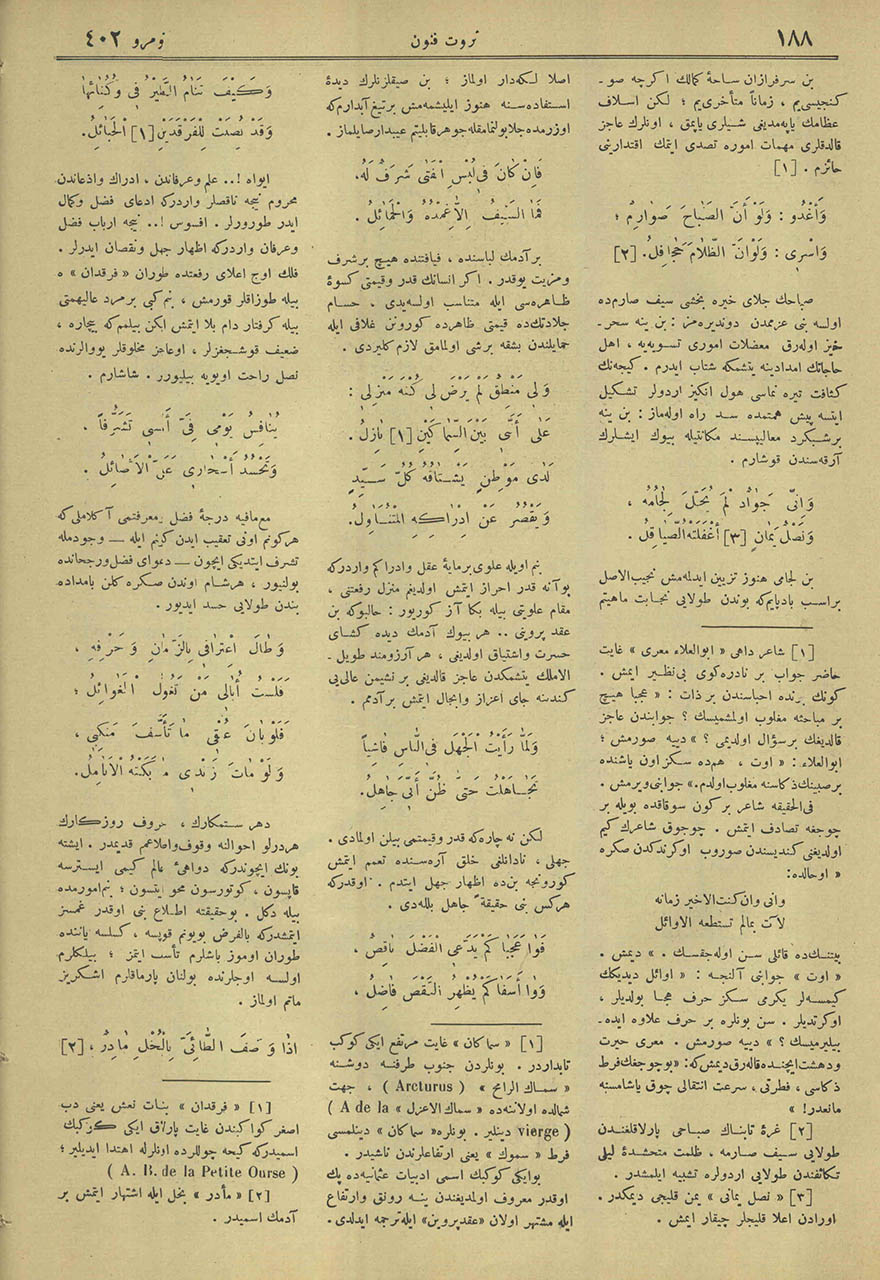 ١٨٨
ثروت فنون
نومرو ٤٠٢
بن سرفرازان ساحهٔ كمالك اكرچه صو-
كنجيسى‌يم ، زماناً متأخرى‌يم ؛ لكن اسلاف
عظامك ياپه‌مديغى شيلرى ياپمق ، اونلرك عاجز
قالدقلرى مهمات اموره تصدى ايتمك اقتدارينى
حائزم . [١]
وَأَغْدُو : وَلَوْ أَنَّ الصَّبَاحَ صَوَارِمٌ ؛
وَاَسْرِى : وَلَوْاَنَّ الظَّلَامَ جَحَافِلُ. [٢]
صباحك جلاى خيره بخشى سيف صارم‌ده
اولسه بنى عزممدن دونديره‌مز : بن ينه سحر-
خيز اوله‌رق معضلات امورى تسويه‌يه ، اهل
حاجاتك امدادينه يتشمكه شتاب ايدرم . كيجه‌نك
كثافت تيره نماسى هول انكيز اردولر تشكيل
ايتسه پيش همتمده سد راه اوله‌ماز : بن ينه
برشبكرد معاليپسند مكانتيله بيوك ايشلرك
آرقه‌سندن قوشارم .
وَ اِنِّى جَوَادٌ لَمْ يُحَلَّ لِجَامُهُ ،
وَنَصْلٌ يَمَانٍ [٣] أَغْفَلَتْهُ الصَّيَاقِلُ .
بن لجامى هنوز تزيين ايدلمه‌مش نجيب‌الاصل
براسب بادپايم‌كه بوندن طولايى نجابت ماهيتم
[١] شاعر داهى « ابوالعلاء معرى » غايت
حاضر جواب بر نادره‌كوى بى‌نظير ايمش .
كونك برنده احباسندن بر ذات : « عجبا هيچ
بر مباحثه مغلوب اولمشميسك ؟ جوابندن عاجز
قالديغك برسؤال اولديمى ؟ » دييه صورمش ؛
ابوالعلاء : « اوت ، هم‌ده سكز اون ياشنده
برصبينك ذكاسنه مغلوب اولدم.» جوابنى ويرمش .
فى‌الحقيقه شاعر بركون سوقاقده بويله بر
چوجغه تصادف ايتمش . چوجوق شاعرك كيم
اولديغنى كنديسندن صوروب اوكرندكدن صكره
« اوحالده:
وانى وان كنت‌الاخير زمانه
لآت بمالم تستطعه الاوائل
بيتنك‌ده قائلى سن اوله‌جقسك . » ديمش .
« اوت » جوابنى آلنجه : « اوائل ديديكك
كيمسه‌لر يكرمى سكز حرف هجا بولديلر ،
اوكرتديلر . سن بونلره بر حرف علاوه ايده-
بيليرميسك ؟ » دييه صورمش . معرى حيرت
ودهشت ايچنده قاله‌رق ديمش‌كه: «بوچوجغك فرط
ذكاسى ، فطرتى ، سرعت انتقالى چوق ياشامسنه
مانعدر! »
[٢] غرهٔ تابناك صباحى پارلاقلغندن
طولايى سيف صارمه ، ظلمت متحشدهٔ ليلى
تكاثفندن طولايى اردولره تشبيه ايلمشدر .
[٣] « نصل يمانى » يمن قليجى ديمكدر .
اورادن اعلا قليجلر چيقار ايمش .
اصلا لكه‌دار اولماز ؛ بن صيقلزنلرك ديدهٔ
استفاده‌سنه هنوز ايليشمه‌مش برتيغ آبدارم‌كه
اوزرمده جلا بولنمامقله جوهر قابليتم عيبدار صايلماز .
فَاِنْ كَانَ فِى لُبْسِ الْفَتَى شَرَفٌ لَهُ،
فَمَا السَّيْفُ اِلَّاغِمْدُهُ وَالْحَمَائِلُ .
بر آدمك لباسنده ، قيافتنده هيچ برشرف
ومزيت يوقدر . اكر انسانك قدر وقيمتى كسوهٔ
ظاهره‌سى ايله متناسب اولسه‌يدى ، حسام
جلادتك‌ده قيمتى ظاهرده كورونن غلافى ايله
حمايلندن بشقه برشى اولمامق لازم كليردى .
وَلِى مَنْطِقٌ لَمْ يَرْضَ لِى كُنْهَ مَنْزِلِى :
عَلَى أَنَّنِى بَيْنَ السِّمَاكَيْنِ [١] نَازِلُ .
لَدَى مَوْطِنٍ يَشْتَاقُهُ كُلُّ سَيِّدٍ
وَيَقْصُرُ عَنْ اِدْرَاكِهِ الْمُتَنَاوِلُ .
بنم اويله علوى برمايهٔ عقل وادراكم واردركه
بوآنه قدر احراز ايتمش اولديغم منزل رفعتى ،
مقام علويتى بيله بكا آز كوريور : حالبوكه بن
عقد پروينى .. هر بيوك آدمك ديده كشاى
حسرت واشتياق اولديغى ، هر آرزومند طويل-
الاملك يتشمكدن عاجز قالديغى بر نشيمن عالى‌يى
كندينه جاى اعزاز وابجال ايتمش بر آدمم .
وَلَمَّا رَأَيْتُ الْجَهْلَ فِى‌النَّاسِ فَاشِياً
تَجَاهَلْتُ حَتَّى ظُنَّ أَنِّى جَاهِلُ.
لكن نه چاره‌كه قدر وقيمتمى بيلن اولمادى .
جهلى ، نادانلغى خلق آره‌سنده تعمم ايتمش
كورونجه بن‌ده اظهار جهل ايتدم . اوقدركه
هركس بنى حقيقةً جاهل بلله‌دى .
فَوَا عَجَبَا كَمْ يَدَّعِى الْفَضْلَ نَاقِصٌ ،
وَوَا أَسَفَا كَمْ يُظْهِرُ النَّقْصَ فَاضِلُ ،
[١] « سماكان » غايت مرتفع ايكى كوكب
تابداردر . بونلردن جنوب طرفنه دوشنه
« سماك الرامح » ( Arcturus ) ، جهت
شمالده اولاننه‌ده « سماك الاعزل » ( A de la
vierge ) دينلير . بونلره « سماكان » دينلمسى
فرط « سموك » يعنى ارتفاعلرندن ناشيدر .
بوايكى كوكبك اسمى ادبيات عثمانيه‌ده پك
اوقدر معروف اولمديغندن ينه رونق وارتفاع
ايله مشتهر اولان «عقد پروين» ايله ترجمه ايدلدى .
وَكَيْفَ تَنَامُ الطَّيْرُ فِى وُكُنَاتِهَا
وَقَدْ نُصِبَتْ لِلْفَرْقَدَيْنِ [١] الْحَبَائِلُ.
ايواه !.. علم وعرفاندن ، ادراك واذعاندن
محروم نيجه ناقصلر واردركه ادعاى فضل وكمال
ايدر طورورلر . افسوس !.. نيجه ارباب فضل
وعرفان واردركه اظهار جهل ونقصان ايدرلر .
فلك اوج اعلاى رفعتده طوران « فرقدان » ه
بيله طوزاقلر قورمش ، بنم كبى برمرد عاليهمتى
بيله كرفتار دام بلا ايتمش ايكن بيلمم‌كه بيچاره ،
ضعيف قوشجغزلر ، اوعاجز مخلوقلر يووالرنده
نصل راحت اويويه بيليورر . شاشارم .
يُنَافِسُ يَوْمِى فِىَّ أَمْسِى تَشَرُّفاً ،
وَتَحْسُدُ أَسْحَارِى عَلَىَّ الْاَصَائِلُ .
مع‌مافيه درجهٔ فضل ومعرفتمى آكلاملى‌كه
هركونم اونى تعقيب ايدن كونم ايله — وجودمله
تشرف ايتديكى ايچون — دعواى فضل ورجحانده
بولنيور ، هرشام اوندن صكره كلن بامداده
بندن طولايى حسد ايديور .
وَطَالَ اعْتِرَافِى بِالزَّمَانِ وَحَرْفِهِ ،
فَلَسْتُ أُبَالِى مَنْ تَغُولُ الْغَوَائِلُ ؛
فَلَوْ بَانَ عُنْقِى مَا تَأَسَّفَ مَنْكِبِى ،
وَلَوْ مَاتَ زَنْدِى مَا بَكَتْهُ الْاَنَامِلُ.
دهر ستمكارك ، حروف روزكارك
هردرلو احوالنه وقوف واطلاعم قديمدر . ايشته
بونك ايچوندركه دواهىٔ عالم كيمى ايسترسه
قاپسون ، كوتورسون محو ايتسون ؛ بنم‌امورمده
بيله دكل . بوحقيقته اطلاع بنى اوقدر غمسز
ايتمشدركه بالفرض بويونم قوپسه ، كسلسه ياننده
طوران اوموز باشلرم تأسف ايتمز ؛ بيلكلرم
اولسه اوجلرنده بولنان پارماقلرم اشكريز
ماتم اولماز .
اِذَا وَصَفَ الطَّائِىَّ بِالْبُخْلِ مَادِرٌ ، [٢]
[١] « فرقدان » بنات نعش يعنى دب
اصغر كواكبندن غايت پارلاق ايكى كوكبك
اسميدركه كيجه چوللرده اونلرله اهتدا ايديلير ؛
( A. B. de la Petite Ourse )
[٢] « مأدر » بخل ايله اشتهار ايتمش بر
آدمك اسميدر .